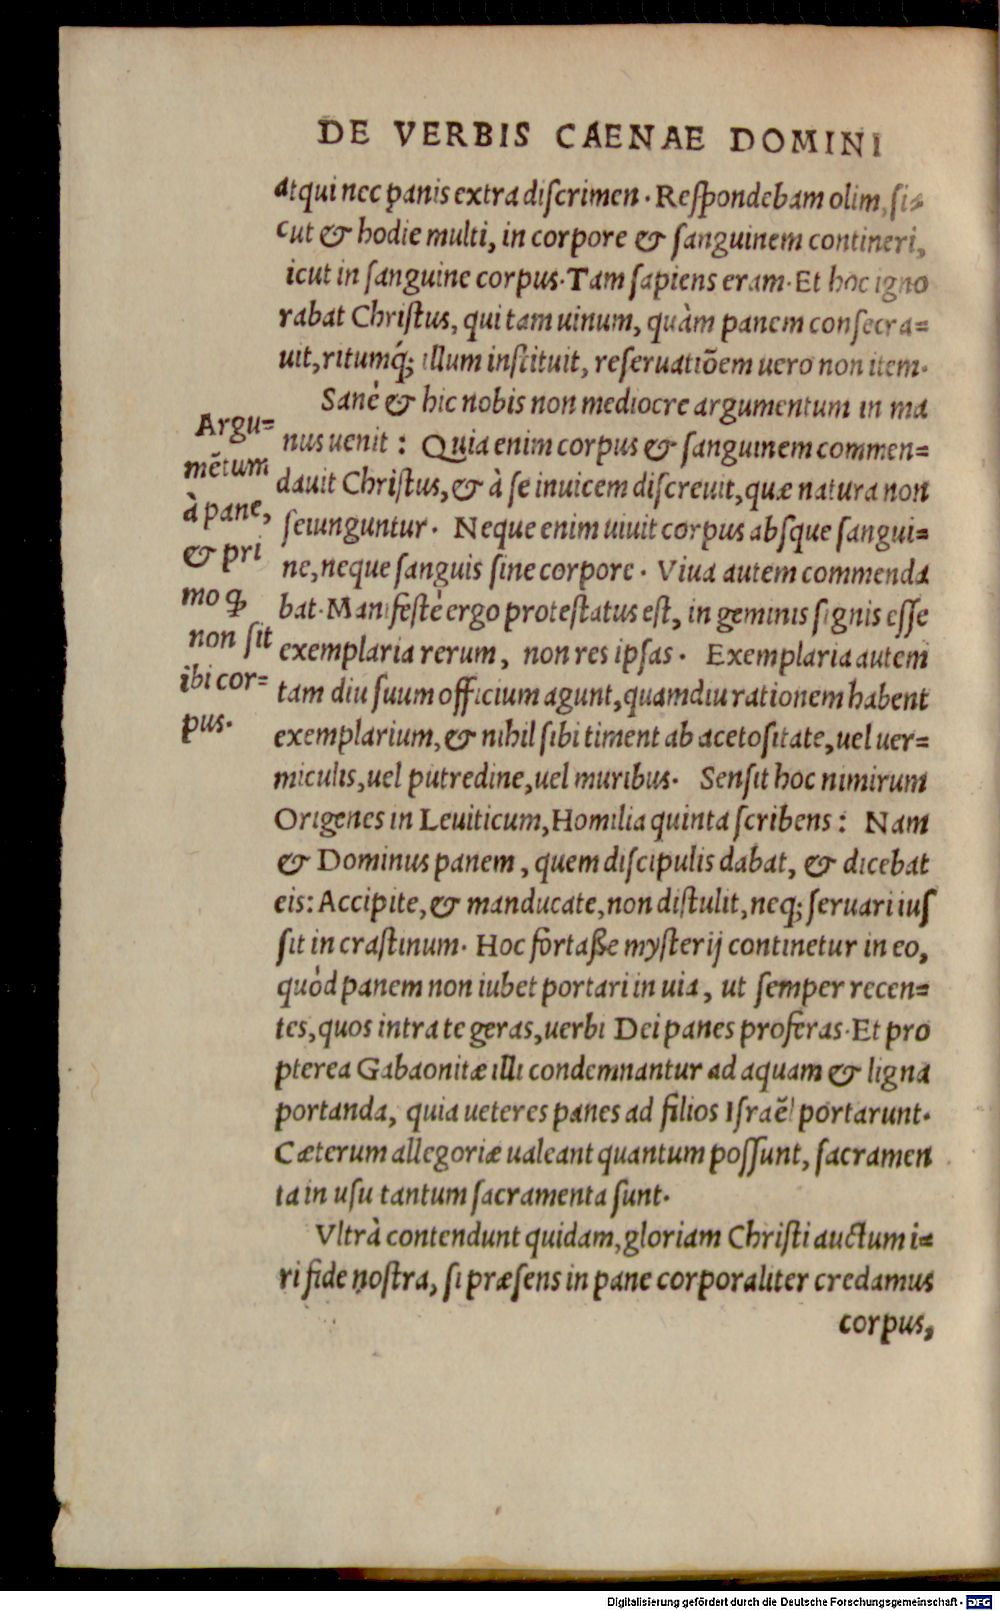 DE VERBIS CAENAE DOMINI
atqui nec panis extra discrimen. Respondebam olim, si=
cut & hodie multi, in corpore & sanguinem contineri,
icut in sanguine corpus. Tam sapiens eram. Et hoc igno
rabat Christus, qui tam uinum, quàm panem consecra=
uit, ritumq́; illum instituit, reseruatiõem uero non item.
Sanè & hic nobis non mediocre argumentum in ma
nus uenit: Quia enim corpus & sanguinem commen=
dauit Christus, & à se inuicem discreuit, quæ natura non
seiunguntur. Neque enim uiuit corpus absque sangui=
ne, neque sanguis sine corpore. Viua autem commenda
bat. Manifestè ergo protestatus est, in geminis signis esse
exemplaria rerum, non res ipsas. Exemplaria autem
tam diu suum officium agunt, quamdiu rationem habent
exemplarium, & nihil sibi timent ab acetositate, uel uer=
miculis, uel putredine, uel muribus. Sensit hoc nimirum
Origenes in Leuiticum, Homilia quinta scribens: Nam
& Dominus panem, quem discipulis dabat, & dicebat
eis: Accipite, & manducate, non distulit, neq; seruari ius
sit in crastinum. Hoc fortaße mysterij continetur in eo,
quòd panem non iubet portari in uia, ut semper recen=
tes, quos intra te geras, uerbi Dei panes proferas. Et pro
pterea Gabaonitæ illi condemnantur ad aquam & ligna
portanda, quia ueteres panes ad filios Israẽl portarunt.
Cæterum allegoriæ ualeant quantum possunt, sacramen
ta in usu tantum sacramenta sunt.
Vltrà contendunt quidam, gloriam Christi auctum i=
ri fide nostra, si præsens in pane corporaliter credamus
corpus,
Argu=
mẽtum
à pane,
& pri
mo ꝙ
non sit
ibi cor=
pus.
Digitalisierung gefördert durch die Deutsche Forschungsgemeinschaft - DFG